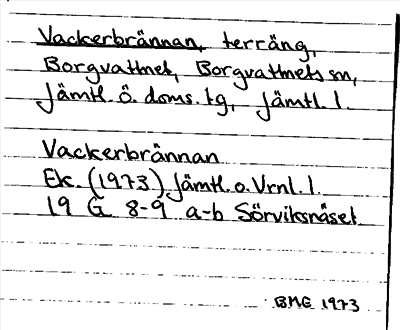 Vackerbrännan, terräng,
Borgvattnet, Borgvattnets sn,
Jämtl. ö. doms. tg, Jämtl. l.
Vackerbrännan
Ek. (1973) Jämtl. o. Vrnl. l.
19 G 8-9 a-b Sörviksnäset
BME 1973